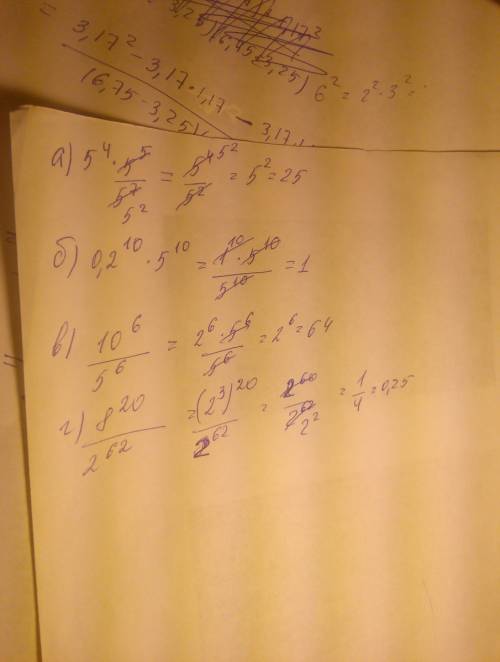 3,17² - 3,17 · 1,17 - 3,17
(6,75 - 3,25)
6² = 2² · 3² =
а) 5⁴ · 5⁵ / 5⁷ = 5⁴ 5² / 5² = 5² = 25
5²
б) 0,2¹⁰ · 5¹⁰ = 1¹⁰ · 5¹⁰ / 5¹⁰ = 1
в) 10⁶ / 5⁶ = 2⁶ · 5⁶ / 5⁶ = 2⁶ = 64
г) 8²⁰ / 2⁶² = (2³)²⁰ / 2⁶² = 2⁶⁰ / 2⁶² = 1/4 = 0,25
2²